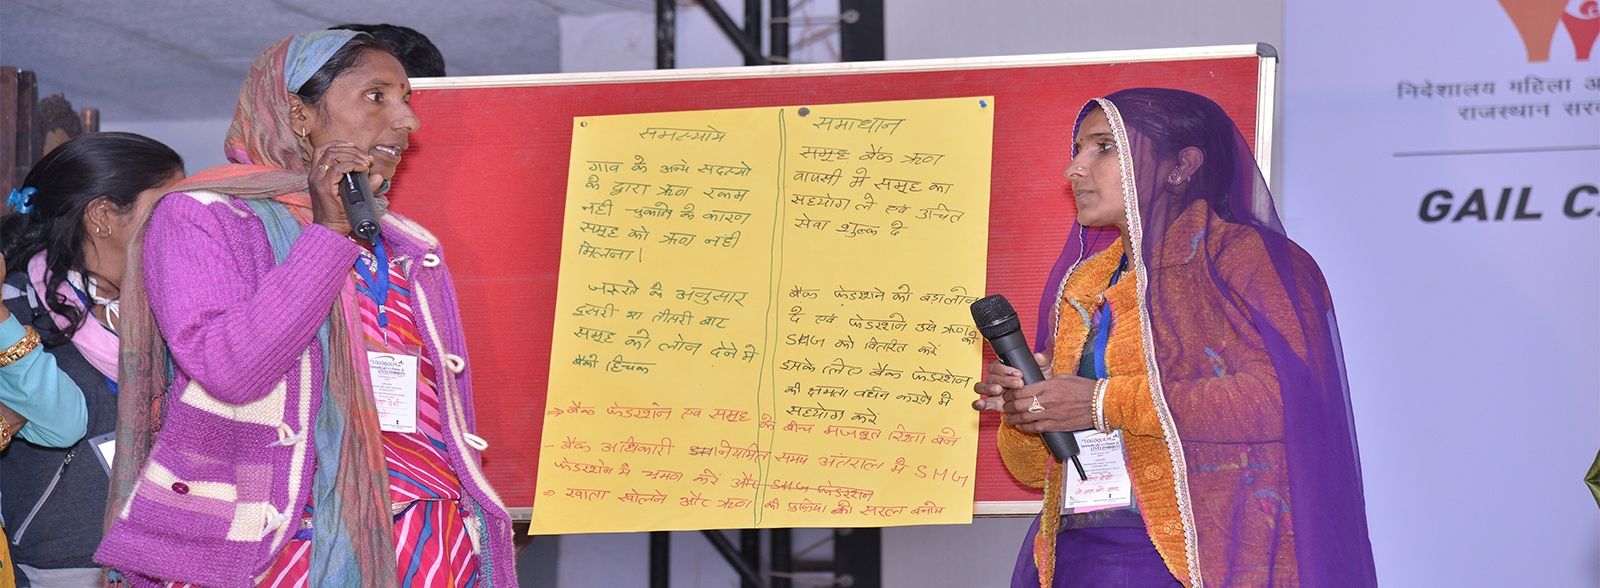 समस्याये
गाव के अन्य सदस्यो
के द्वारा ऋण रकम
नही चुकाने के कारण
समुह को ऋण नही
मिलना।
जरूरत के अनुसार
दुसरी या तीसरी बार
समुह को लोन देने मे
बैंको हिचक
समाधान
समुह बैंक ऋण
वापसी मे समुह का
सहयोग ले एवं उचित
सेवा शुल्क दे
बैंक फेडरेशन को बडा लोन
दे एवं फेडरेशन उसे ऋण को
SHG को वितरित करें
इसके लिए बैंक फेडरेशन
की क्षमता वर्धन करने मे
सहयोग करें
→ बैंक फेडरेशन एवं समुह के बीच मजबुत रिश्ता बने
- बैंक अधिकारी नियमित समय अंतराल मे SHG
फेडरेशन मे भ्रमण करें और SHG फेडरेशन
खाता खोलने और ऋण की प्रक्रिया को सरल बनाये
निदेशालय महिला अ
राजस्थान सरक
GAIL C
COLLOQUIUM